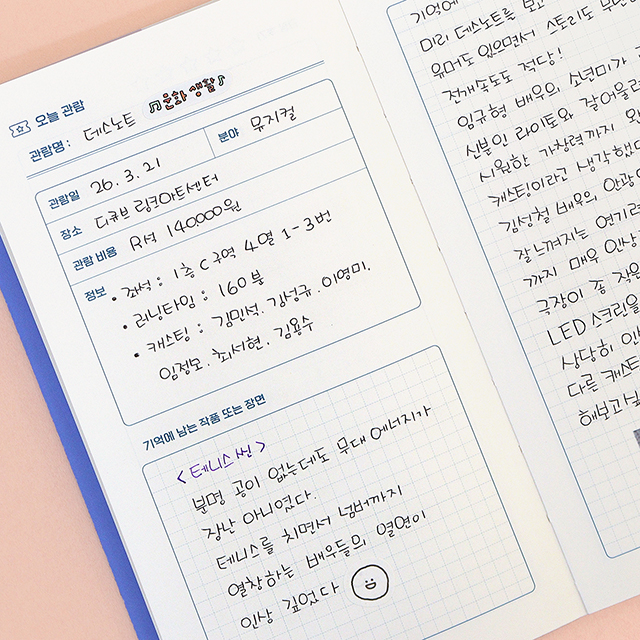 오늘 관람
관람명 : 데스노트 문화생활
관람일 26. 3. 21 분야 뮤지컬
장소 디큐브 링크아트센터
관람 비용 R석 140,000원
정보 • 좌석 : 1층 C구역 4열 1-3번
• 러닝타임 : 160분
• 캐스팅 : 김민석. 김성규. 이영미.
임정모. 최서현. 김용수
기억에 남는 작품 또는 장면
<테니스 씬>
분명 공이 없는데도 무대 에너지가
장난 아니였다.
테니스를 치면서 넘버까지
열창하는 배우들의 열연이
인상 깊었다
기억에
미리 데스노트를 보고
유머도 있으면서 스토리도
전개속도도 적당!
임규형 배우의 소년미가
신분인 라이토와 잘어울리
시원한 가창력까지
캐스팅이라고 생각했
김성철 배우의
잘 느껴지는 연기력
까지 매우 인상
극장이 좀 작은
LED 스크린을
상당히 인
다른 캐스
해보고싶